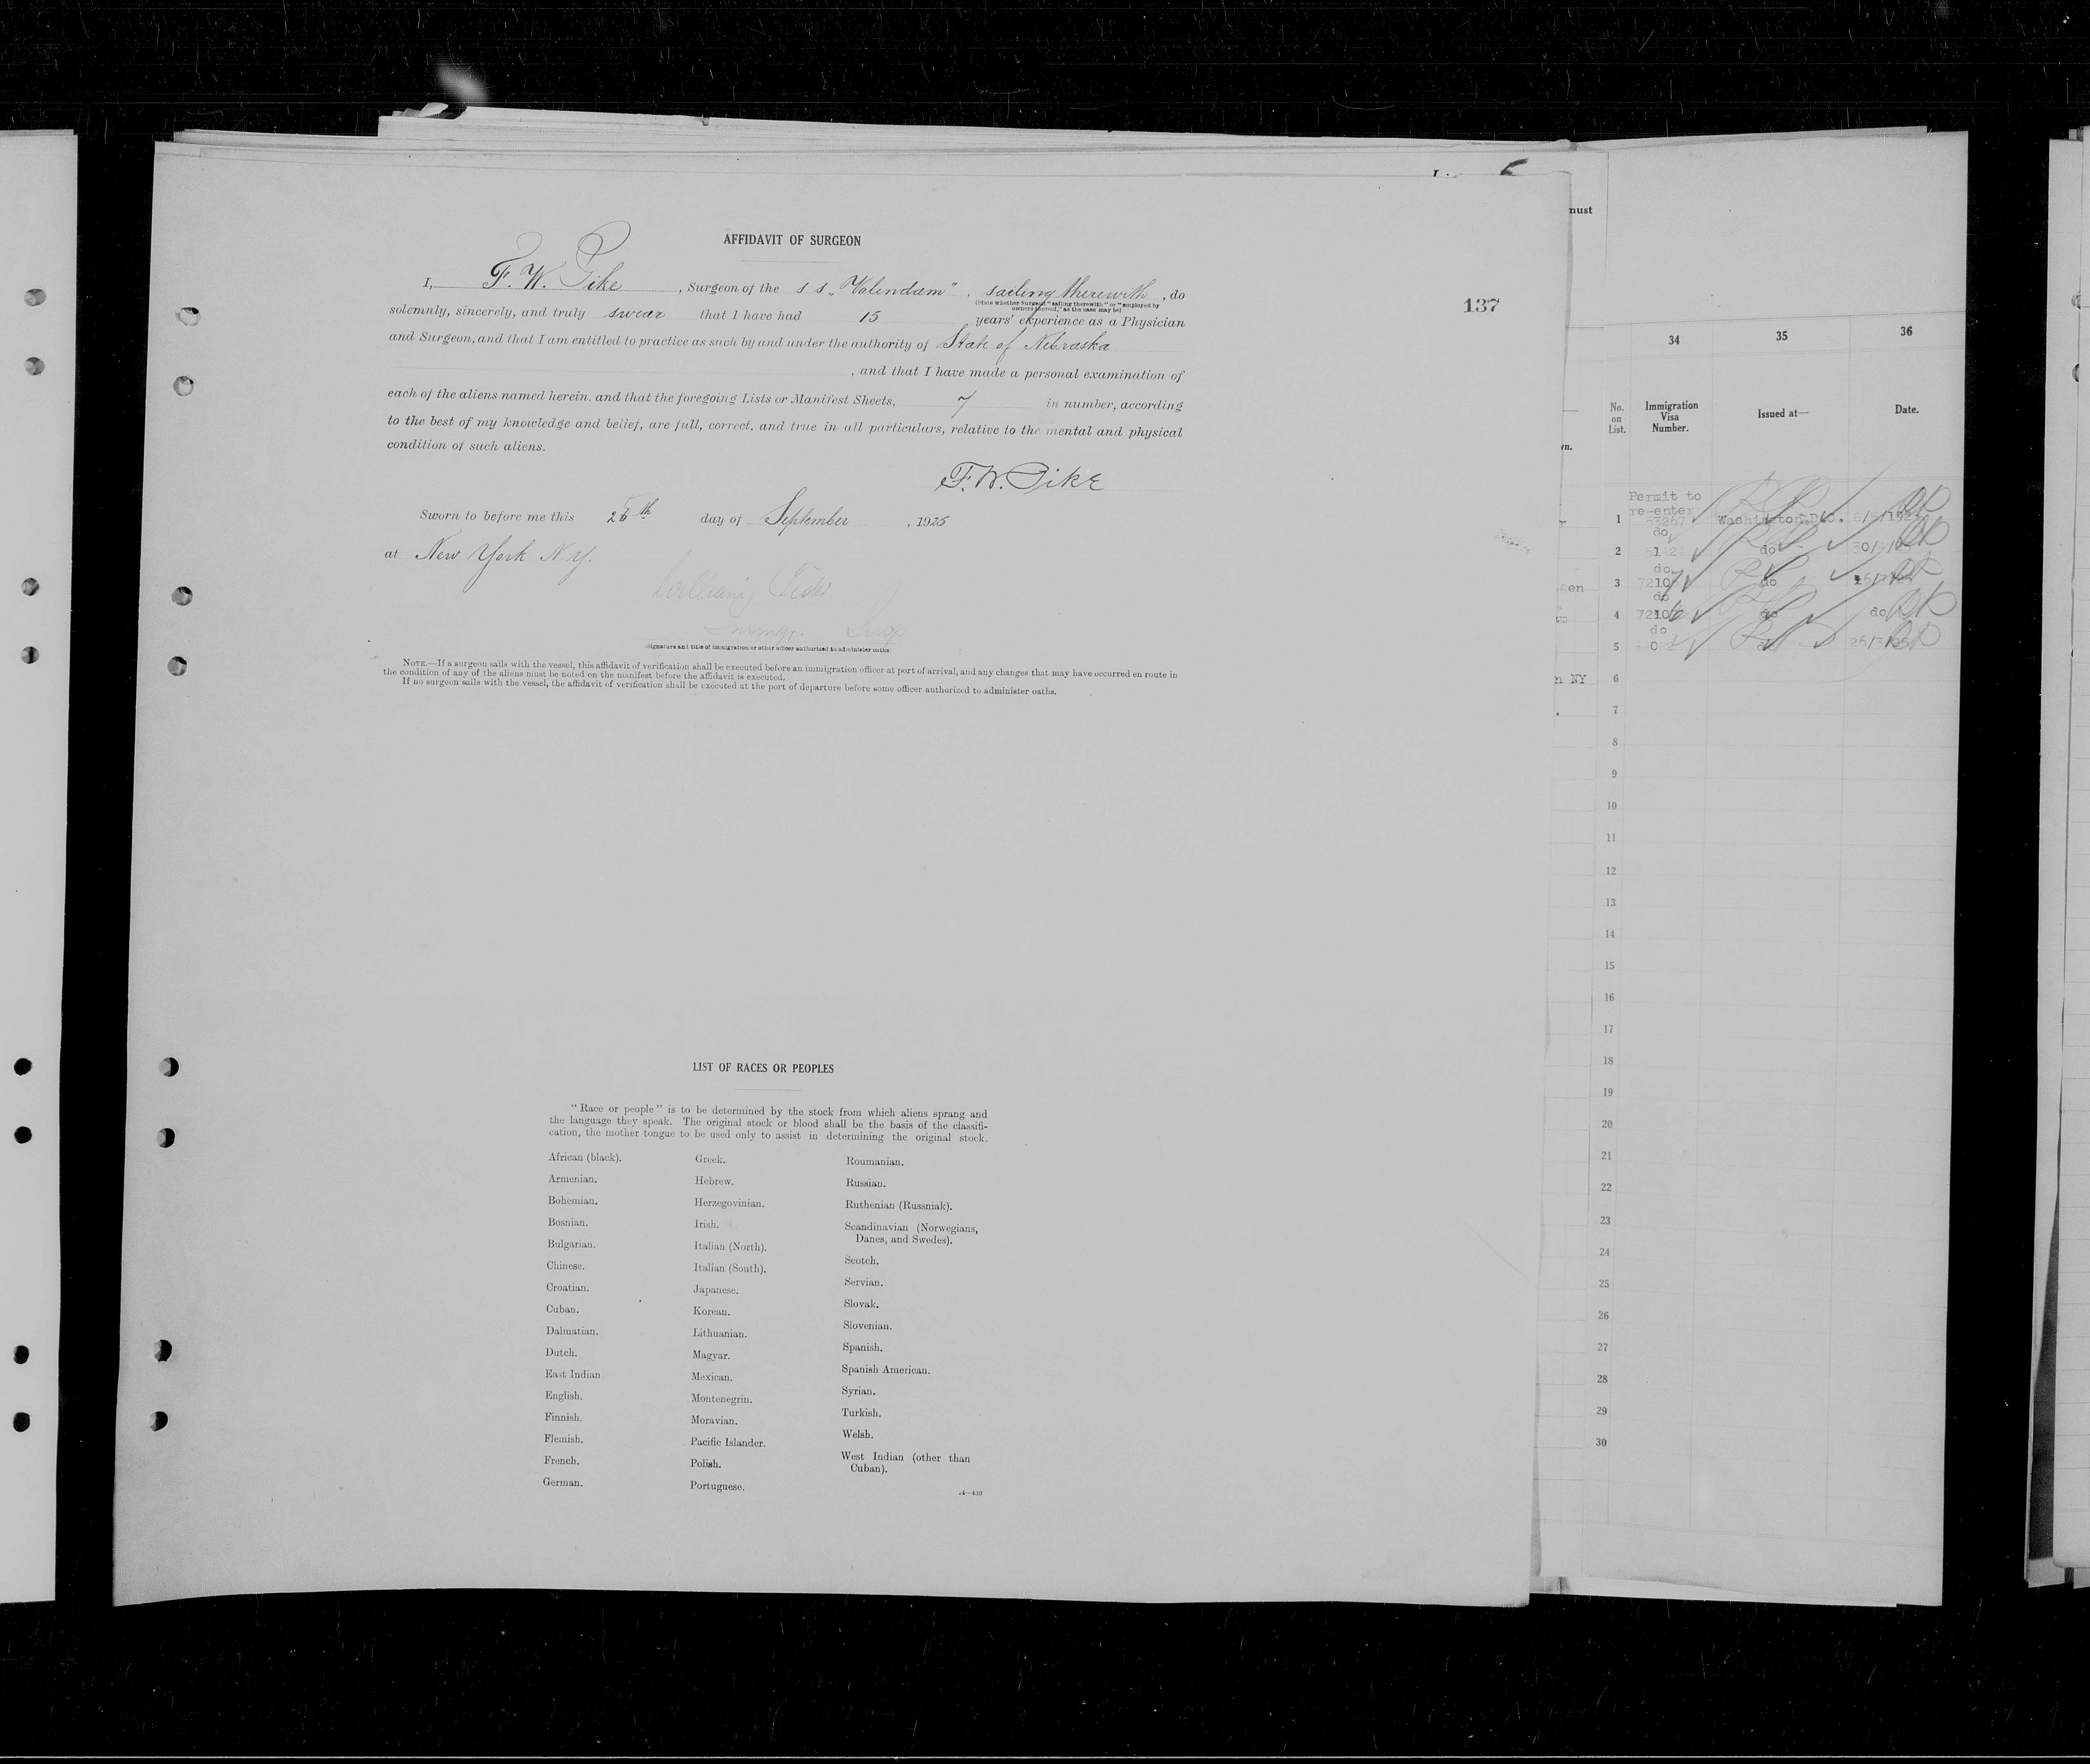 AFFIDAVIT OF SURGEON
I, F. W. Pike, Surgeon of the s s „Volendam", sailing therewith, do
(State whether Surgeon "sailing therewith" or "employed by
owners thereof," as the case may be)
solemnly, sincerely, and truly swear that I have had 15 years' experience as a Physician
and Surgeon, and that I am entitled to practice as such by and under the authority of State of Nebraska
, and that I have made a personal examination of
each of the aliens named herein, and that the foregoing Lists or Manifest Sheets, 7 in number, according
to the best of my knowledge and belief, are full, correct, and true in all particulars, relative to the mental and physical
condition of such aliens.
F. W. Pike
Sworn to before me this day of September, 1925
at New York N.Y.
William
(Signature and title of immigration or other officer authorized to administer oaths)
NOTE.—If a surgeon sails with the vessel, this affidavit of verification shall be executed before an immigration officer at port of arrival, and any changes that may have occurred en route in
the condition of any of the aliens must be noted on the manifest before the affidavit is executed.
If no surgeon sails with the vessel, the affidavit of verification shall be executed at the port of departure before some officer authorized to administer oaths.
137
LIST OF RACES OR PEOPLES
"Race or people" is to be determined by the stock from which aliens sprang and
the language they speak. The original stock or blood shall be the basis of the classifi-
cation, the mother tongue to be used only to assist in determining the original stock.
African (black).
Armenian.
Bohemian.
Bosnian.
Bulgarian.
Chinese.
Croatian.
Cuban.
Dalmatian.
Dutch.
East Indian.
English.
Finnish.
Flemish.
French.
German.
Greek.
Hebrew.
Herzegovinian.
Irish.
Italian (North).
Italian (South).
Japanese.
Korean.
Lithuanian.
Magyar.
Mexican.
Montenegrin.
Moravian.
Pacific Islander.
Polish.
Portuguese.
Roumanian.
Russian.
Ruthenian (Russniak).
Scandinavian (Norwegians,
Danes, and Swedes).
Scotch.
Servian.
Slovak.
Slovenian.
Spanish.
Spanish American.
Syrian.
Turkish.
Welsh.
West Indian (other than
Cuban).
must
n NY
34 35 36
No.
on
List.
Immigration
Visa
Number.
Issued at—
Date.
Permit to
re-enter
1 53267 Washington D.C.
do
2 do
do
3 do
do
4 do do
do
5
6
7
8
9
10
11
12
13
14
15
16
17
18
19
20
21
22
23
24
25
26
27
28
29
30